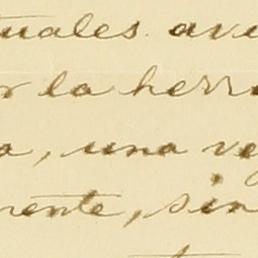 tuales. ave
r la herr
a, una ve
rente, sin